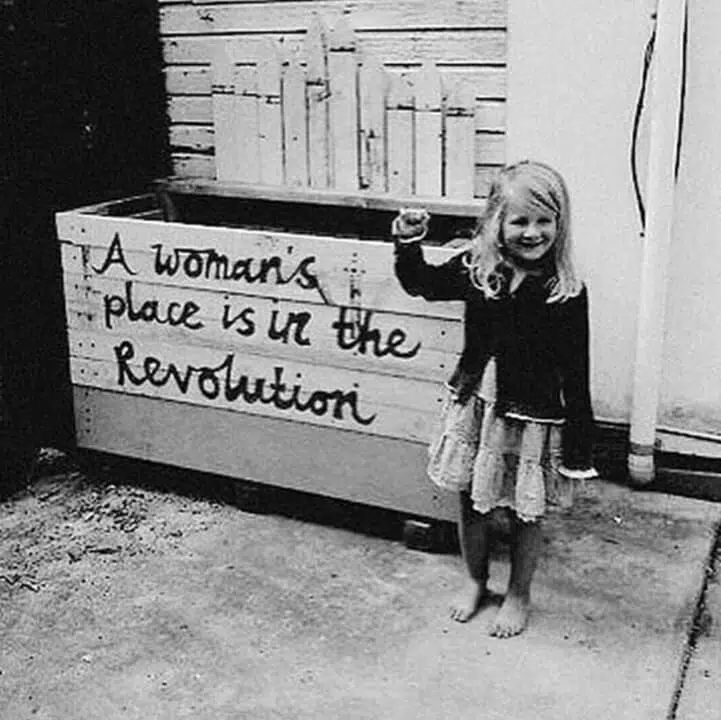 A woman's
place is in the
Revolution